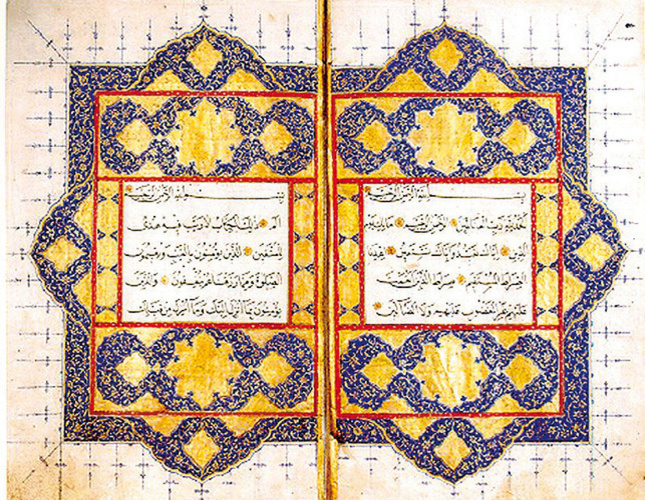 بسم الله الرحمن الرحيم
الحمد لله رب العالمين الرحمن الرحيم مالك يوم
الدين إياك نعبد وإياك نستعين اهدنا
الصراط المستقيم صراط الذين أنعمت
عليهم غير المغضوب عليهم ولا الضالين
بسم الله الرحمن الرحيم
الم ذلك الكتاب لا ريب فيه هدى
للمتقين الذين يؤمنون بالغيب ويقيمون
الصلوة ومما رزقناهم ينفقون والذين
يؤمنون بما أنزل إليك وما أنزل من قبلك